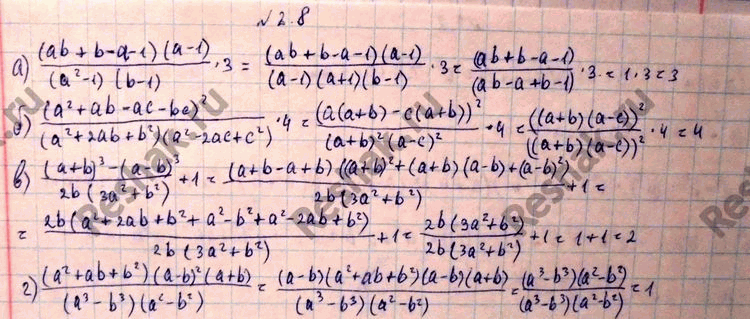 № 2.8
а) (ab+b-a-1)(a-1)/(a²-1)(b-1) · 3 = (ab+b-a-1)(a-1)/(a-1)(a+1)(b-1) · 3 = (ab+b-a-1)/(ab-a+b-1) · 3 = 1·3 = 3
б) (a²+ab-ac-bc)²/(a²+2ab+b²)(a²-2ac+c²) · 4 = (a(a+b)-c(a+b))²/(a+b)²(a-c)² · 4 = ((a+b)(a-c))²/((a+b)(a-c))² · 4 = 4
в) (a+b)³-(a-b)³/2b(3a²+b²) + 1 = (a+b-a+b)((a+b)²+(a+b)(a-b)+(a-b)²)/2b(3a²+b²) + 1 =
= 2b(a²+2ab+b²+a²-b²+a²-2ab+b²)/2b(3a²+b²) + 1 = 2b(3a²+b²)/2b(3a²+b²) + 1 = 1+1 = 2
г) (a²+ab+b²)(a-b)²(a+b)/(a³-b³)(a²-b²) = (a-b)(a²+ab+b²)(a-b)(a+b)/(a³-b³)(a²-b²) = (a³-b³)(a²-b²)/(a³-b³)(a²-b²) = 1
Reshak.ru
Reshak.ru
Reshak.ru
Reshak.ru